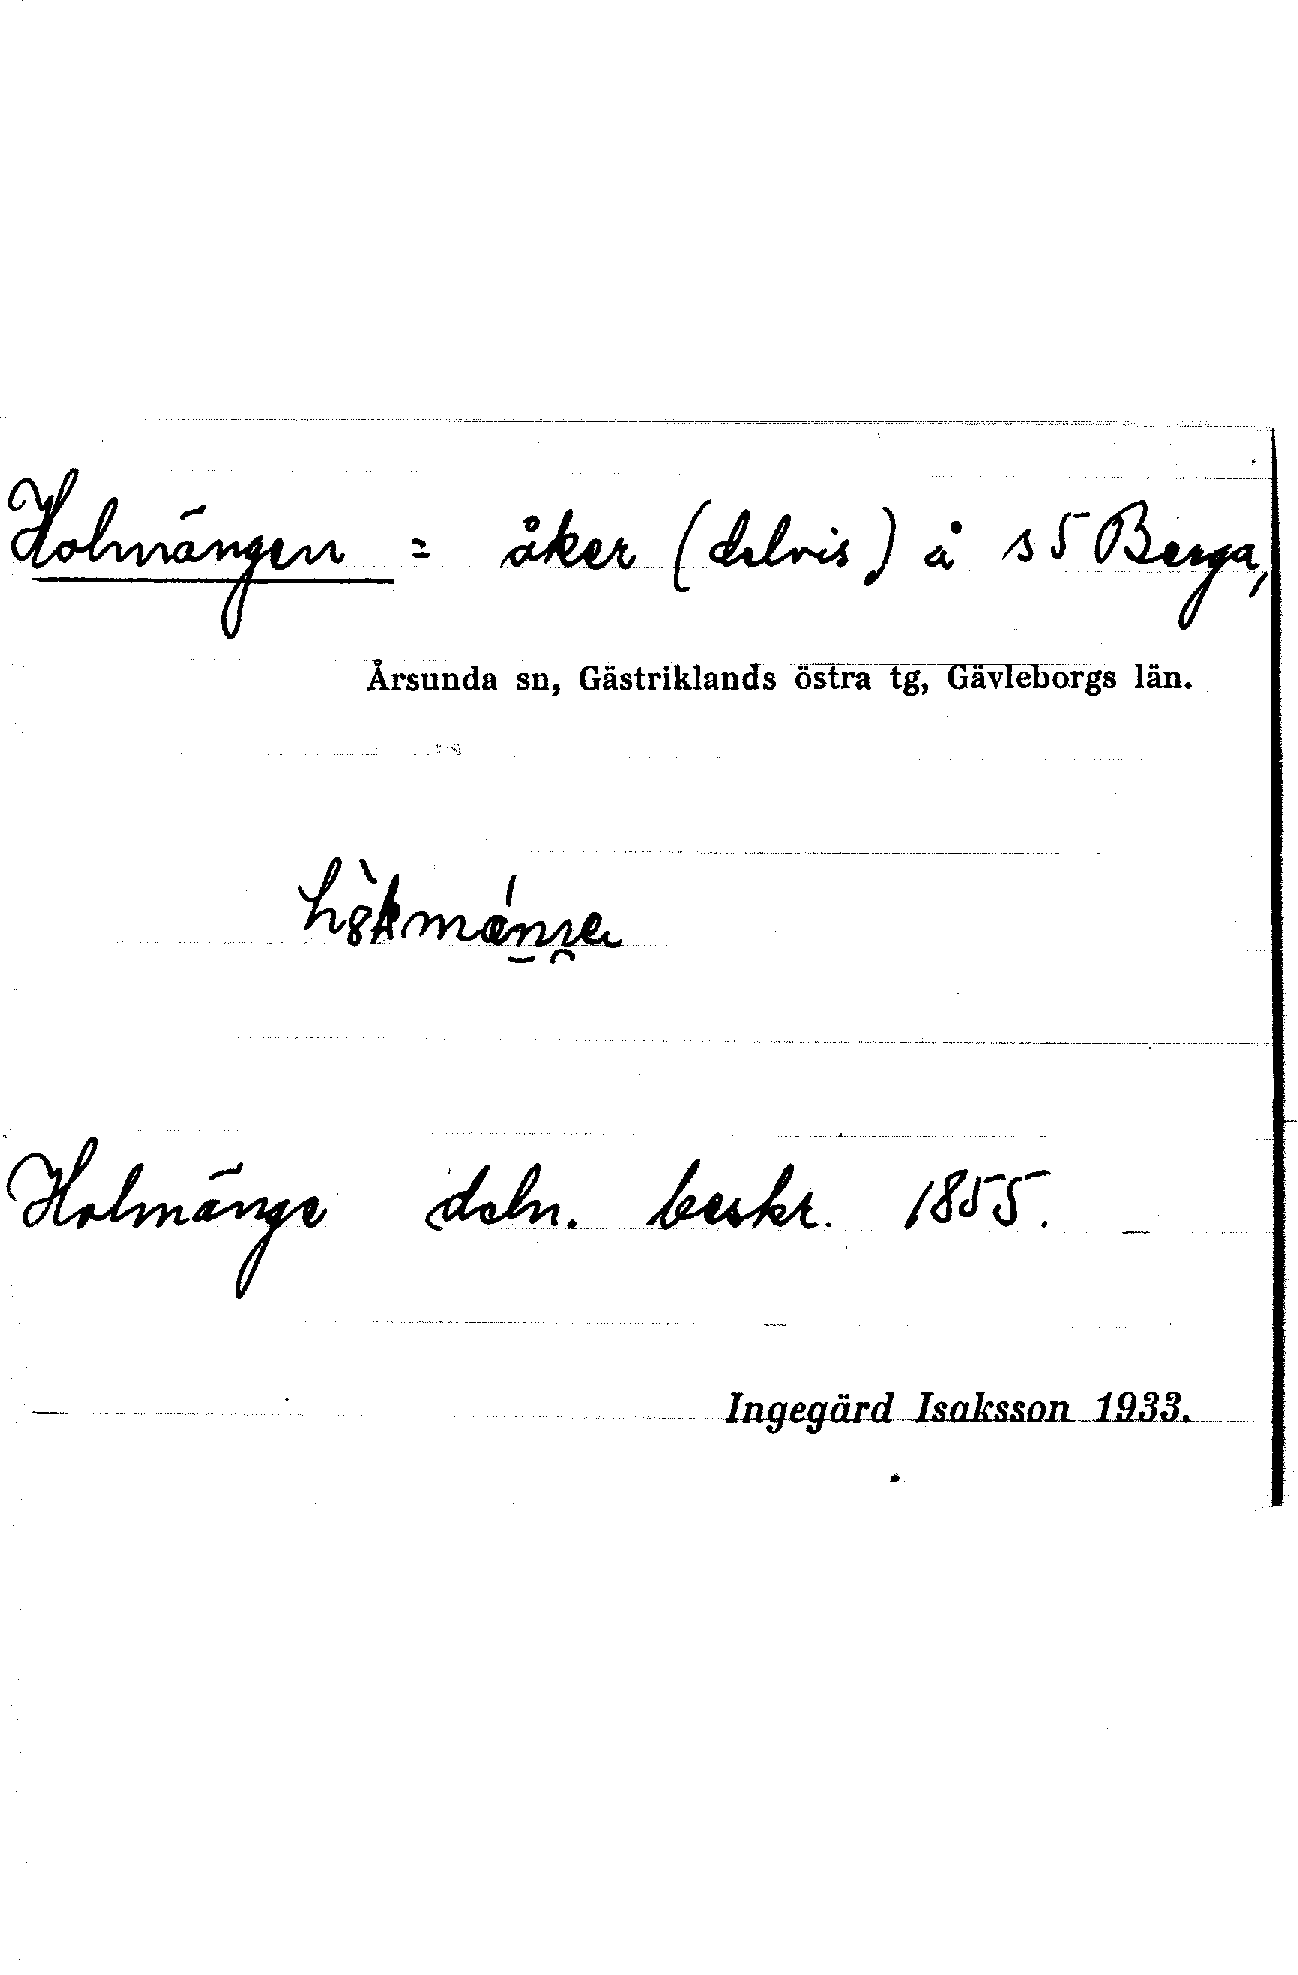 Holmängen = åker (delvis) å s 5 Berga,
Årsunda sn, Gästriklands östra tg, Gävleborgs län.
Holmänge deln. beskr. 1855.
Ingegärd Isaksson 1933.